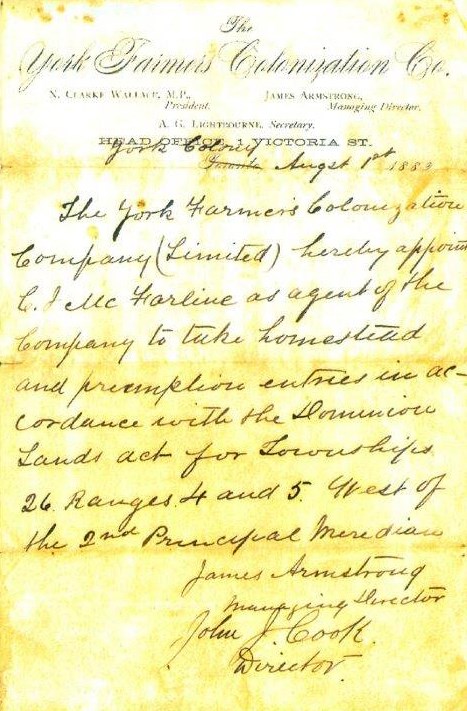 The
York Farmers Colonization Co.
N. CLARKE WALLACE, M.P.,
President.
JAMES ARMSTRONG,
Managing Director.
A. G. LIGHTBOURNE, Secretary.
HEAD OFFICE, 1 VICTORIA ST.
York Colony
Toronto Augst 1st 1883
The York Farmers Colonization
Company (Limited) hereby appoint
C. J Mc Farline as agent of the
Company to take homestead
and preemption entries in ac-
cordance with the Dominion
Lands act for Townships
26 Ranges 4 and 5 West of
the 2nd Principal Meridian
James Armstrong
Managing Director
John J. Cook.
Director.